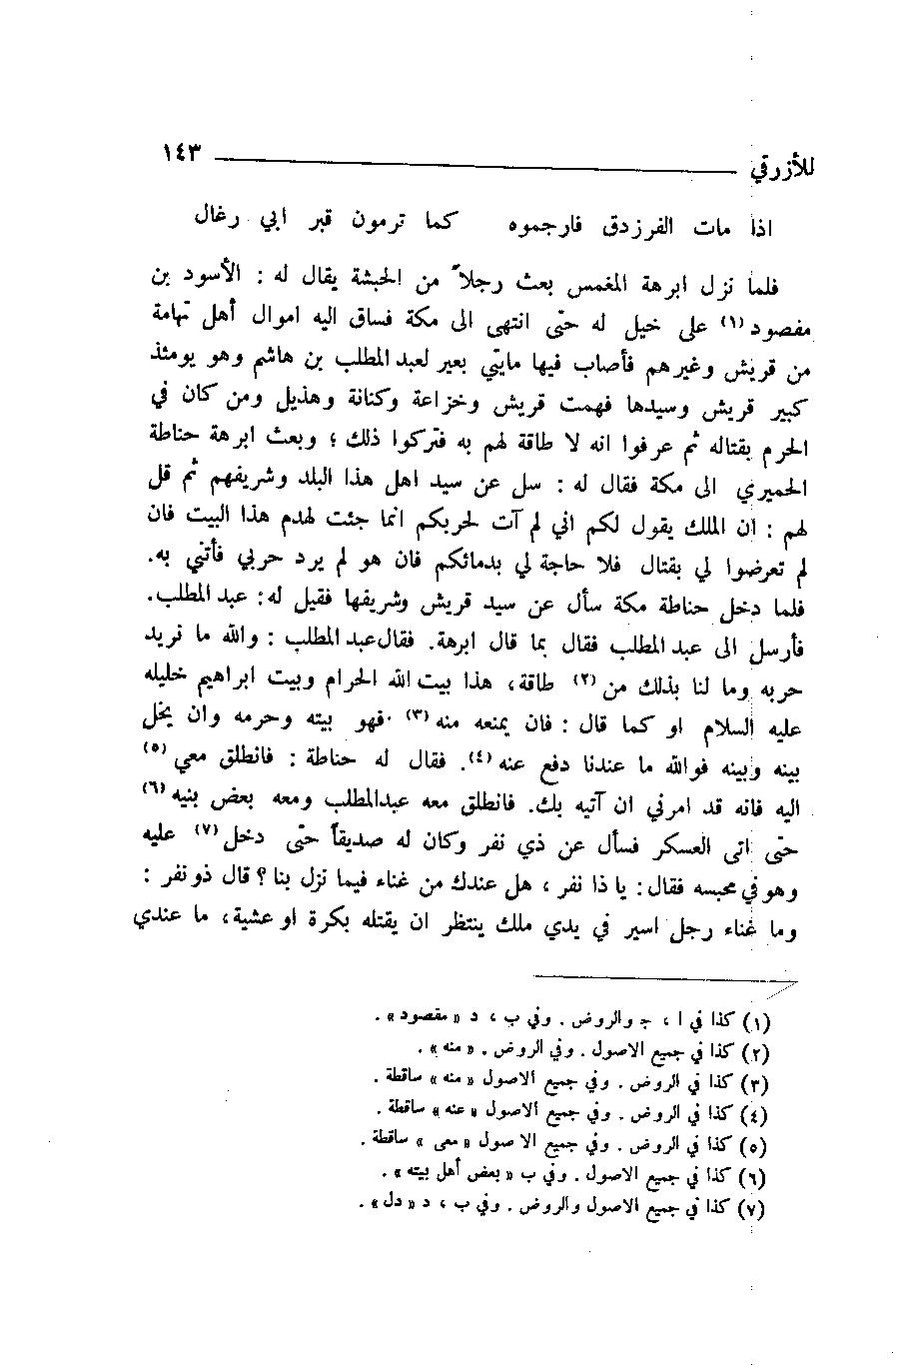 للأزرقي ١٤٣
اذا مات الفرزدق فارجموه كما ترمون قبر ابي رغال
فلما نزل ابرهة المغمس بعث رجلاً من الحبشة يقال له : الأسود بن
مفصود (١) على خيل له حتى انتهى الى مكة فساق اليه اموال أهل تهامة
من قريش وغيرهم فأصاب فيها مايتي بعير لعبد المطلب بن هاشم وهو يومئذ
كبير قريش وسيدها فهمت قريش وخزاعة وكنانة وهذيل ومن كان في
الحرم بقتاله ثم عرفوا انه لا طاقة لهم به فتركوا ذلك ؛ وبعث ابرهة حناطة
الحميري الى مكة فقال له : سل عن سيد اهل هذا البلد وشريفهم ثم قل
لهم : ان الملك يقول لكم اني لم آت لحربكم انما جئت لهدم هذا البيت فان
لم تعرضوا لي بقتال فلا حاجة لي بدمائكم فان هو لم يرد حربي فأتني به.
فلما دخل حناطة مكة سأل عن سيد قريش وشريفها فقيل له: عبد المطلب.
فأرسل الى عبد المطلب فقال بما قال ابرهة. فقال عبد المطلب : والله ما نريد
حربه وما لنا بذلك من (٢) طاقة، هذا بيت الله الحرام وبيت ابراهيم خليله
عليه السلام او كما قال : فان يمنعه منه (٣) فهو بيته وحرمه وان يخل
بينه وبينه فوالله ما عندنا دفع عنه (٤). فقال له حناطة : فانطلق معي (٥)
اليه فانه قد امرني ان آتيه بك. فانطلق معه عبدالمطلب ومعه بعض بنيه (٦)
حتى اتى العسكر فسأل عن ذي نفر وكان له صديقاً حتى دخل (٧) عليه
وهو في محبسه فقال : يا ذا نفر ، هل عندك من غناء فيما نزل بنا ؟ قال ذو نفر :
وما غناء رجل اسير في يدي ملك ينتظر ان يقتله بكرة او عشية، ما عندي
(١) كذا في ا ، ج والروض . وفي ب ، د « مقصود » .
(٢) كذا في جميع الاصول . وفي الروض . « منه » .
(٣) كذا في الروض . وفي جميع الاصول « منه » ساقطة .
(٤) كذا في الروض . وفي جميع الاصول « عنه » ساقطة .
(٥) كذا في الروض . وفي جميع الاصول « معى » ساقطة .
(٦) كذا في جميع الاصول . وفي ب « بعض أهل بيته » .
(٧) كذا في جميع الاصول والروض . وفي ب ، د « دل » .